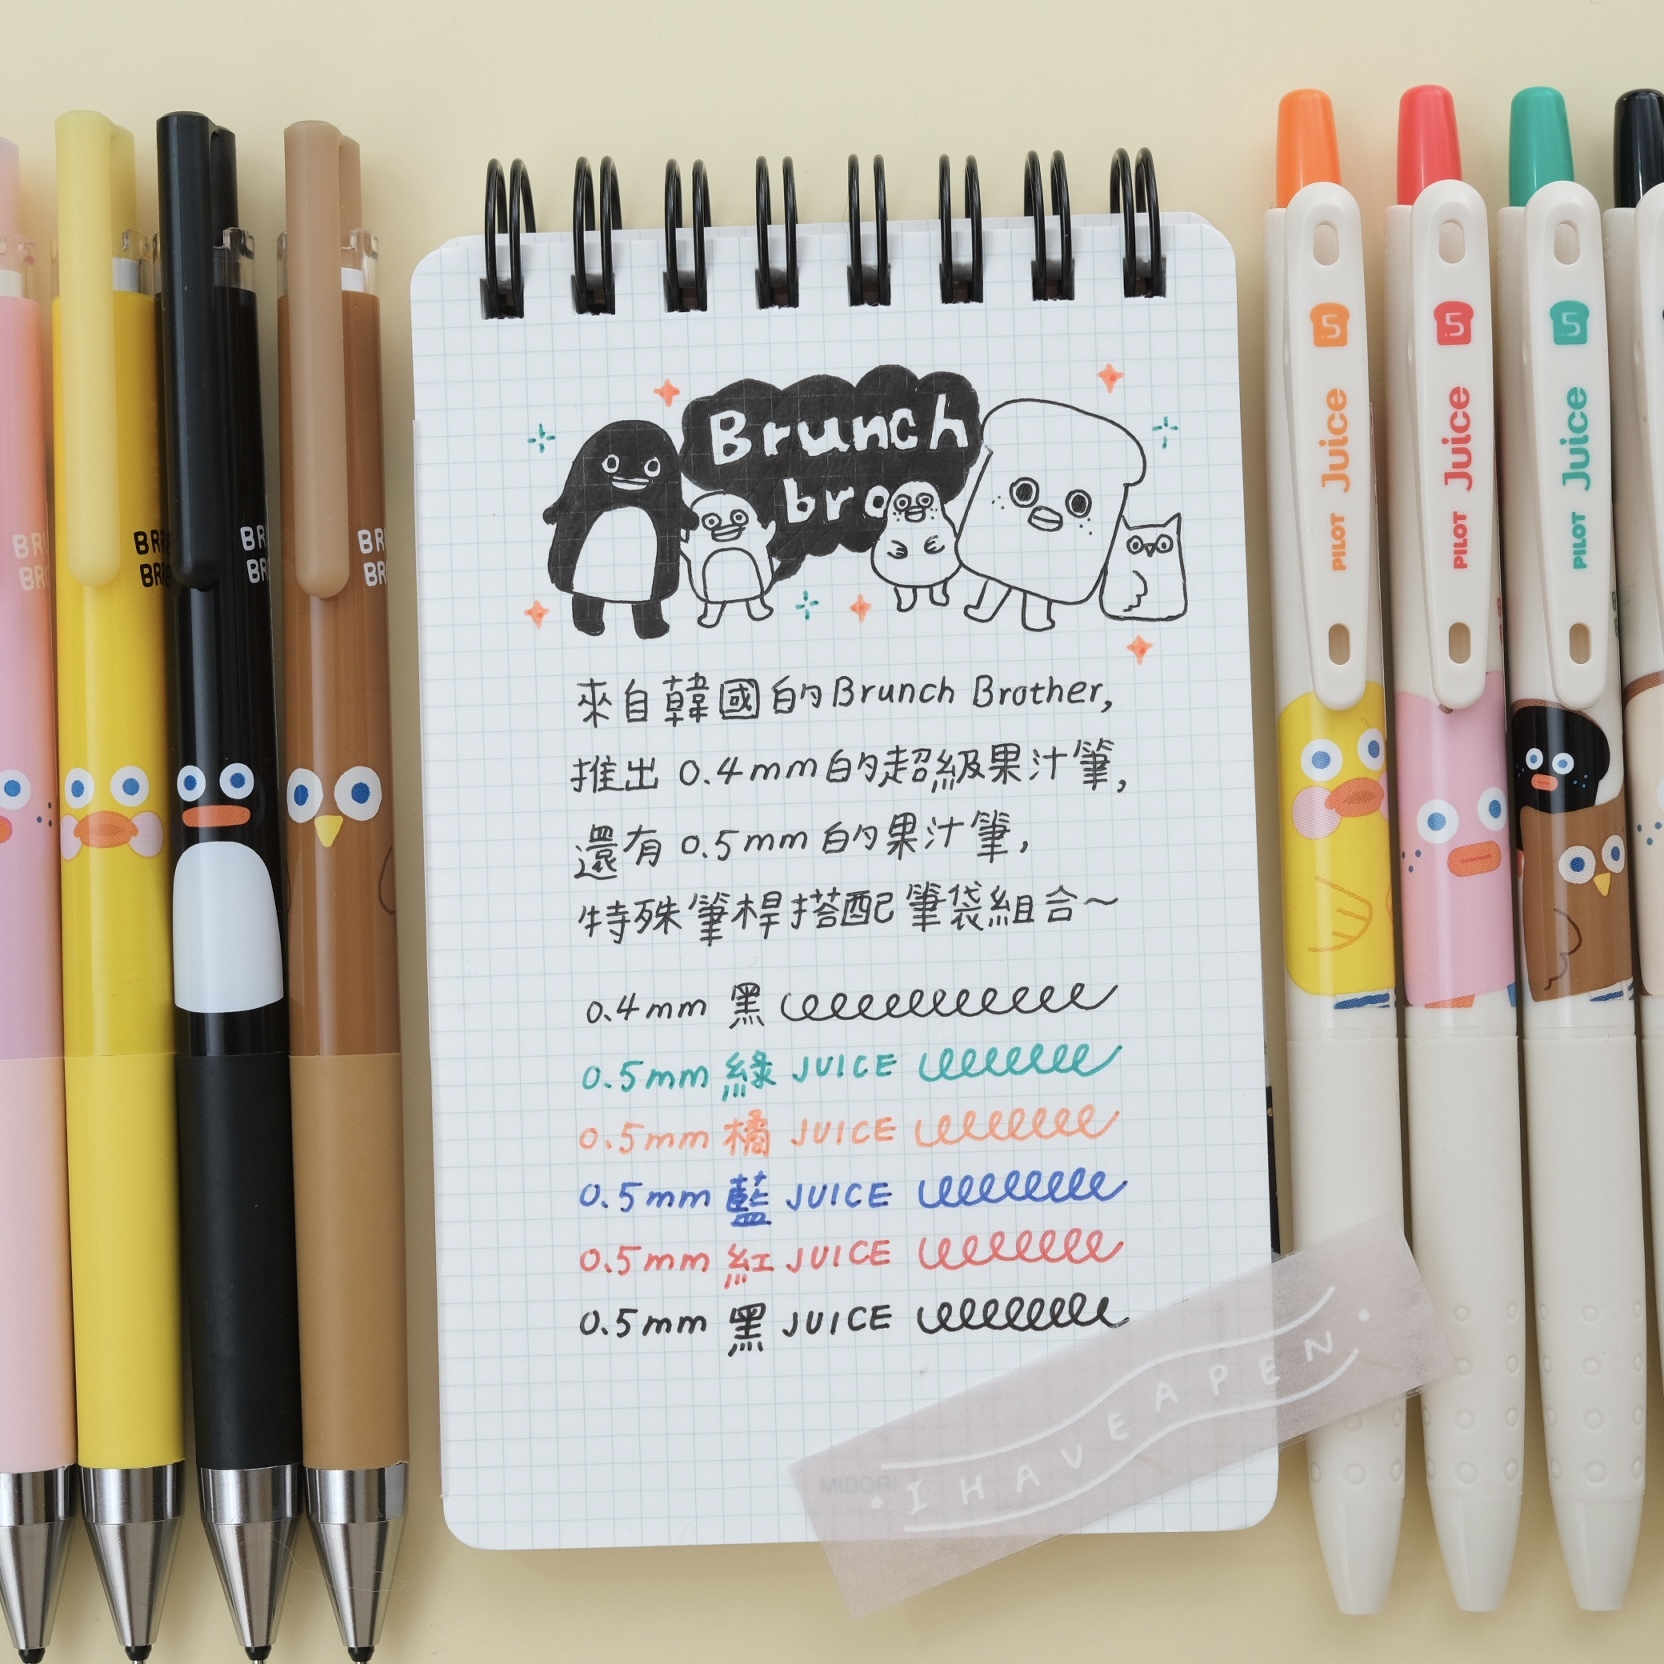 Brunch
bro
來自韓國的Brunch Brother,
推出 0.4mm的超級果汁筆,
還有 0.5mm的果汁筆,
特殊筆桿搭配筆袋組合~
0.4mm 黑
0.5mm 綠 JUICE
0.5mm 橘 JUICE
0.5mm 藍 JUICE
0.5mm 紅 JUICE
0.5mm 黑 JUICE
MIDORI
I HAVE A PEN
5
PILOT Juice
5
PILOT Juice
5
PILOT Juice